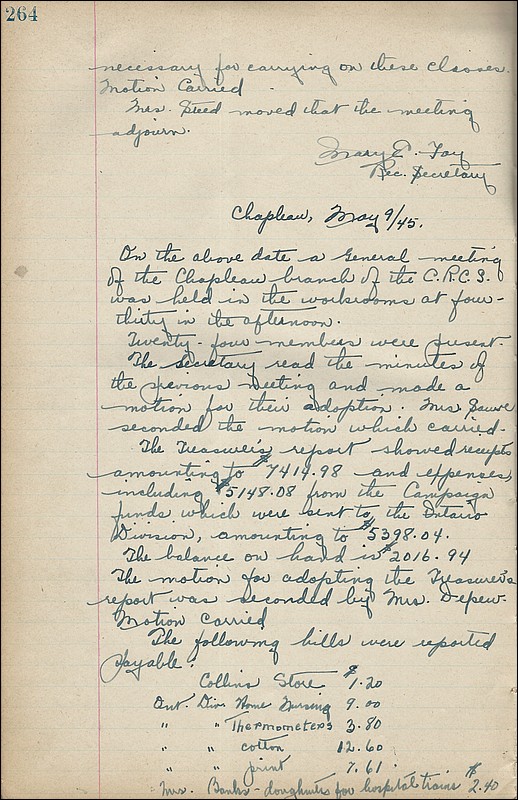 264
necessary for carrying on these classes.
Motion Carried.
Mrs. Steed moved that the meeting
adjourn.
Mary E. Fay
Rec. Secretary
Chapleau, May 9/45.
On the above date a General meeting
of the Chapleau branch of the C.R.C.S.
was held in the workrooms at four-
thirty in the afternoon.
Twenty-four members were present.
The secretary read the minutes of
the previous meeting and made a
motion for their adoption. Mrs. Sauve
seconded the motion which carried.
The Treasurer's report showed receipts
amounting to $7414.98 and expenses,
including $5148.08 from the Campaign
funds which were sent to the Ontario
Division, amounting to $5398.04.
The balance on hand is $2016.94
The motion for adopting the Treasurer's
report was seconded by Mrs. Depew.
Motion carried
The following bills were reported
payable:
Collins Store $1.20
Ont. Div. Home Nursing 9.00
" " Thermometers 3.80
" " cotton 12.60
" " print 7.61
Mrs. Banks - doughnuts for hospital trains $2.40